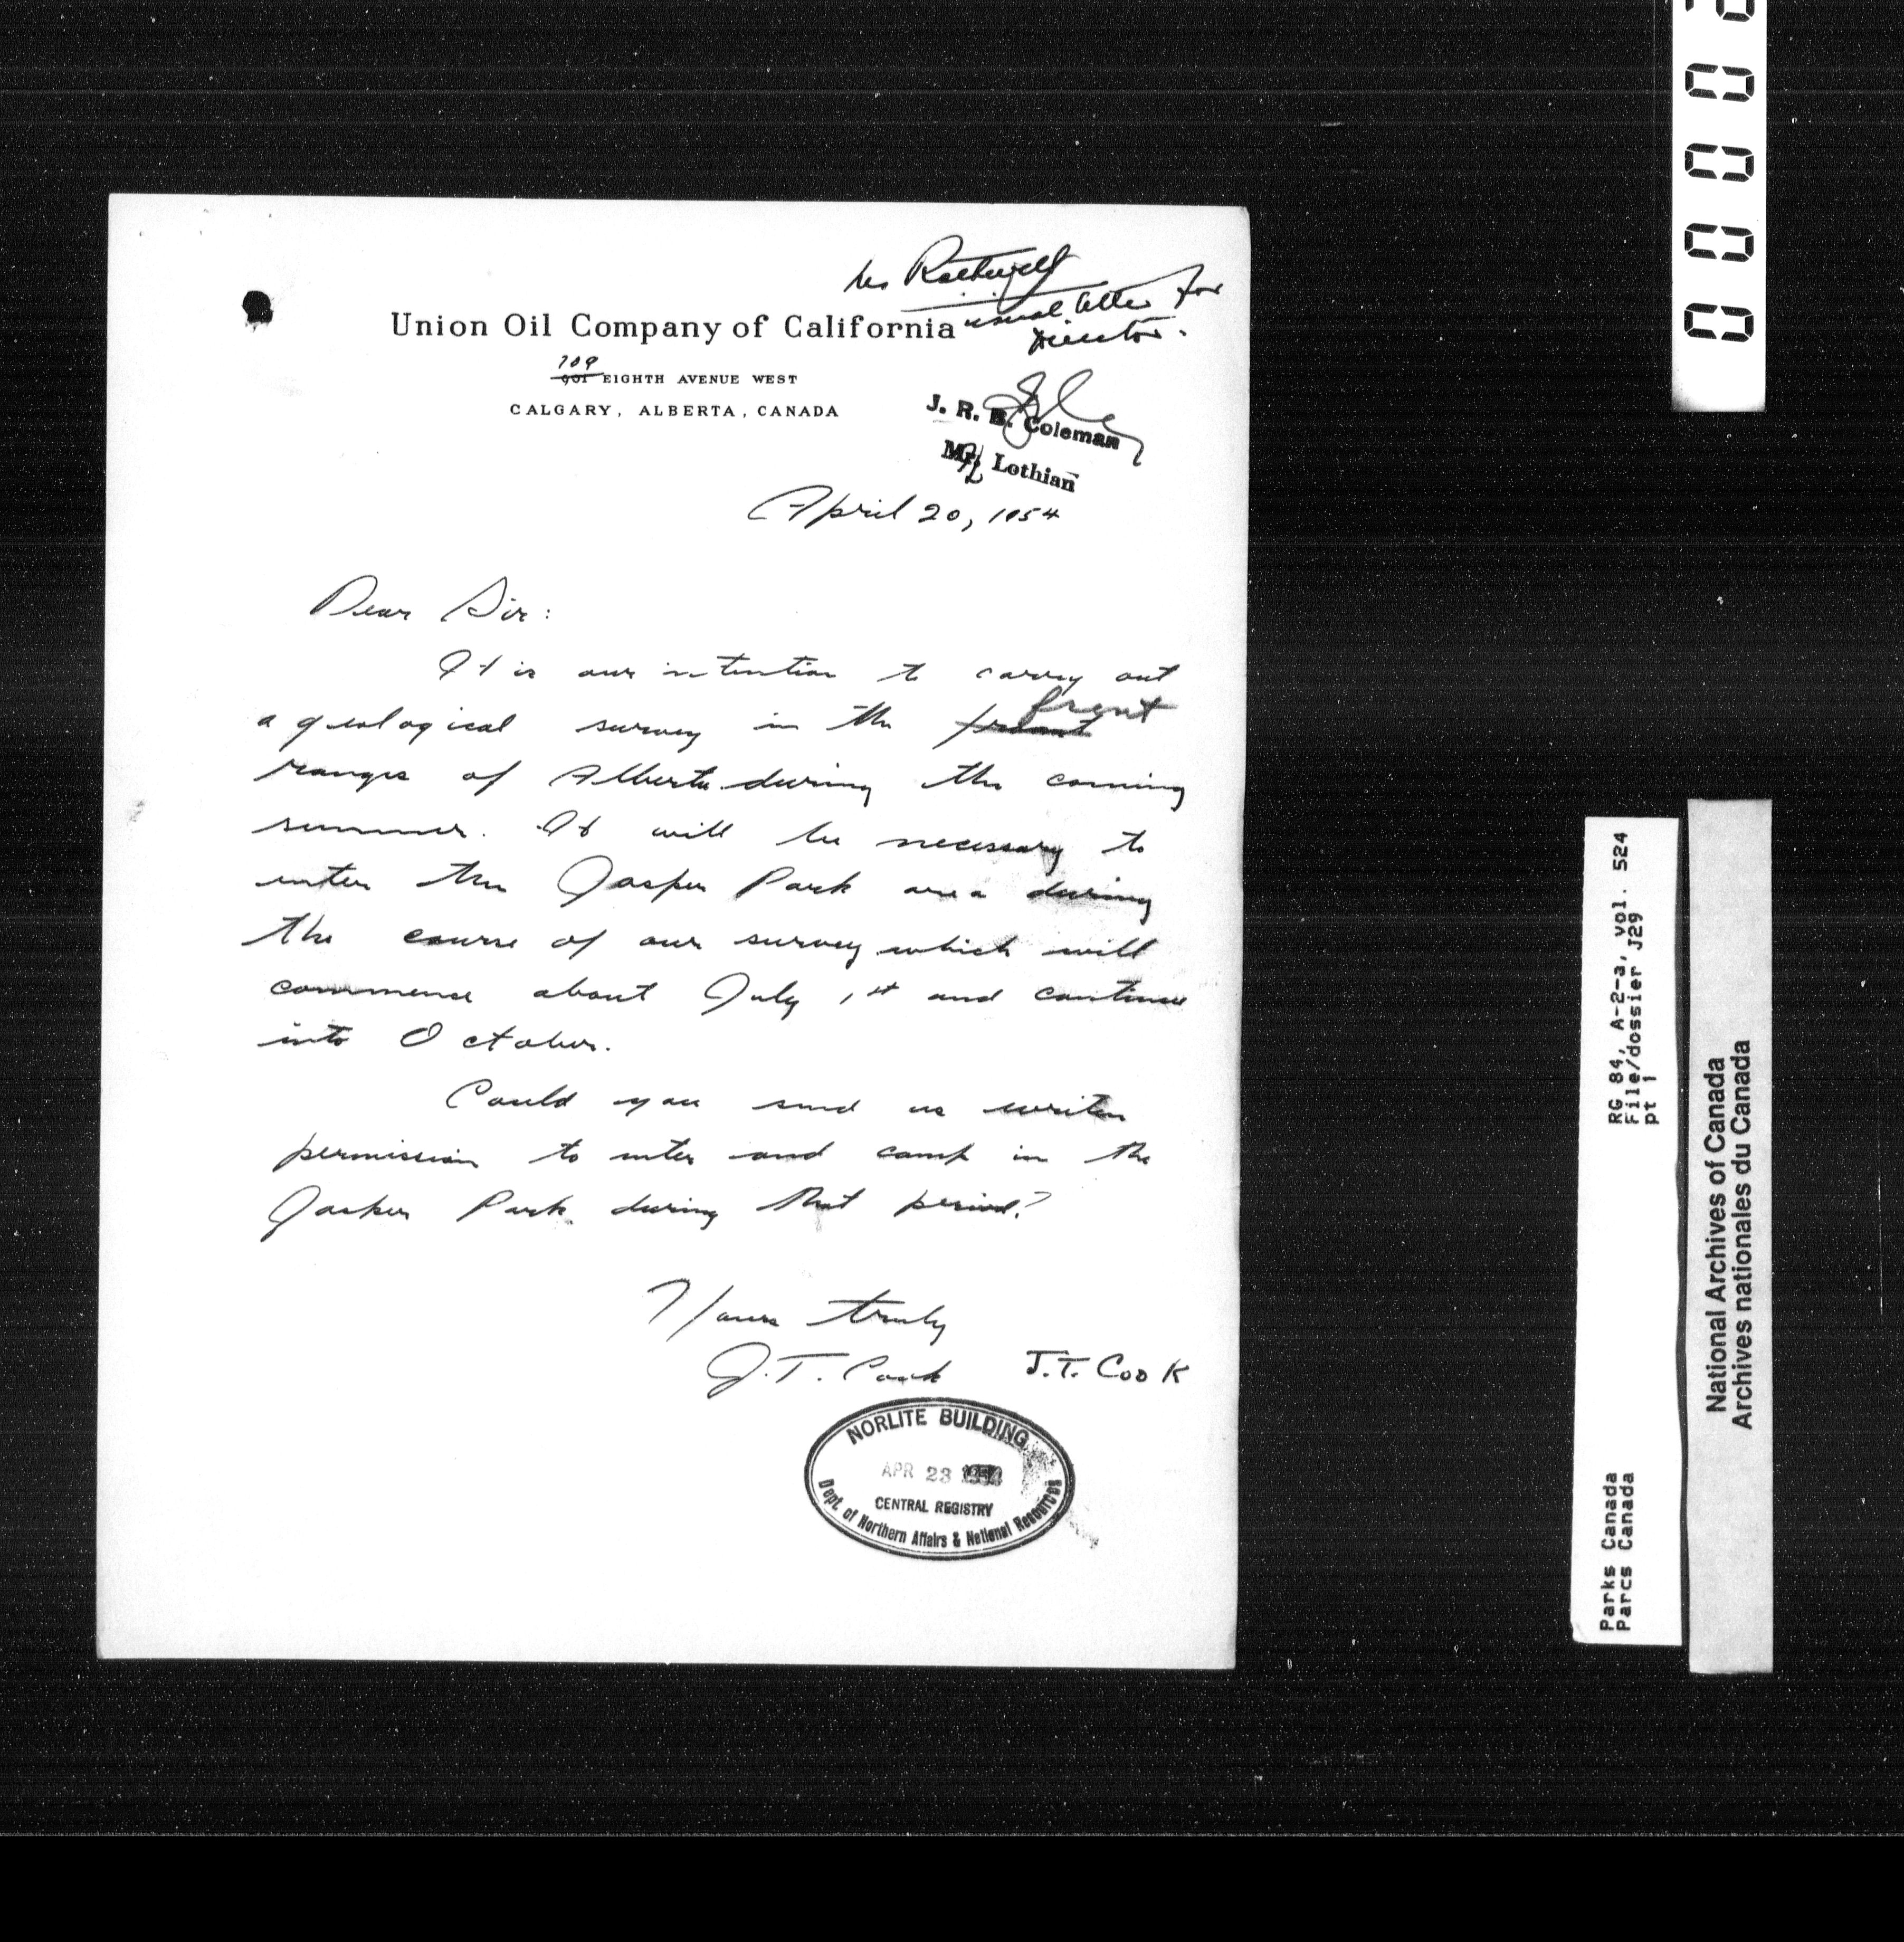 Mr Rothwell
usual letter for
Director.
Union Oil Company of California
709
901 EIGHTH AVENUE WEST
CALGARY, ALBERTA, CANADA
J. R. B. Coleman
Mr. Lothian
April 20, 1954
Dear Sir:
It is our intention to carry out
a geological survey in the front front
ranges of Alberta during the coming
summer. It will be necessary to
enter the Jasper Park area during
the course of our survey which will
commence about July 1st and continue
into October.
Could you send us writen
permission to enter and camp in the
Jasper Park during that period?
Yours truly
J.T. Cook J.T. COOK
NORLITE BUILDING
APR 23 1954
CENTRAL REGISTRY
Dept. of Northern Affairs & National Resources
RG 84, A-2-a, vol. 524
File/dossier J29
pt 1
Parks Canada
Parcs Canada
National Archives of Canada
Archives nationales du Canada